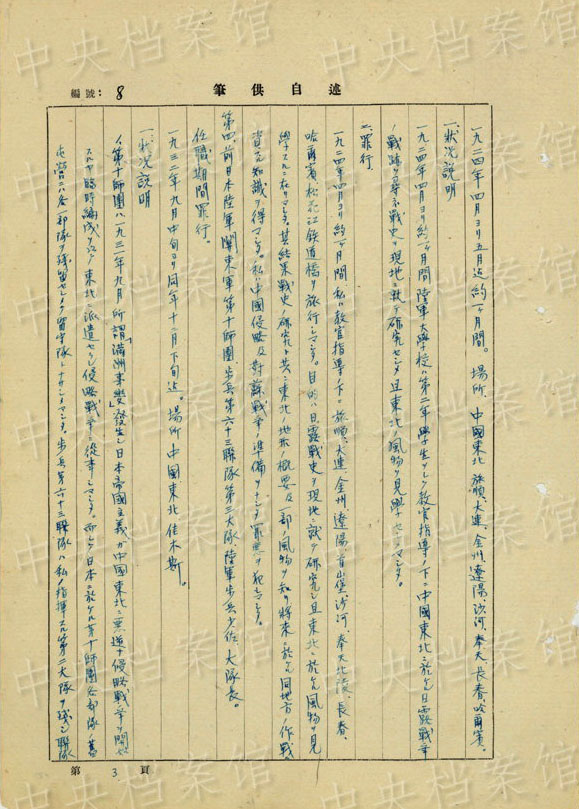 編號：8
筆供自述
一九二四年四月ヨリ五月迄約一ヶ月間。場所、中國東北旅順、大連、金州、遼陽、沙河、奉天、長春、哈爾濱。
一、狀況説明
一九二四年四月ヨリ約一ヶ月間陸軍大學校ハ第二年學生ヲシテ教官指導ノ下ニ中國東北ニ於ケル日露戰爭
ノ戰跡ヲ尋ネ戰史ヲ現地ニ就テ研究セシメ且東北ノ風物ヲ見學セシメマシタ。
二、罪行。
一九二四年四月ヨリ約一ヶ月間私ハ教官指導ノ下ニ旅順、大連、金州、遼陽、首山堡、沙河、奉天北陵、長春、
哈爾濱松花江鉄道橋ヲ旅行シマシタ。目的ハ日露戰史ヲ現地ニ就テ研究シ且東北ニ於ケル風物ヲ見
學スルニ在リマシタ。其結果戰史ノ研究ト共ニ東北ノ地形ノ概要及一部ノ風物ヲ知リ將來ニ於ケル同地方ノ作戰
資スル知識ヲ得マシタ。私ハ中國侵略及對蘇戰爭ノ準備ヲナシタ罪惡ヲ犯シマシタ。
第四、前日本陸軍關東軍第十師團、步兵第六十三聯隊第二大隊、陸軍步兵少佐、大隊長。
任職期間罪行。
一九三二年九月中旬ヨリ同年十二月下旬迄。場所中國東北佳木斯。
一、狀況説明
イ、第十師團ハ一九三一年九月所謂「滿洲事變」發生シ日本帝國主義ガ中國東北ニ無道ナ侵略戰爭ヲ開始
スルヤ臨時編成ヲ以テ東北ニ派遣セラレ侵略戰爭ニ從事シマシタ。而シテ日本ニ於ケル第十師團各部隊ノ舊
屯營ニハ各一部隊ヲ殘留セシメ留守隊トナサシメマシタ。步兵第六十三聯隊ハ私ノ指揮スル第二大隊ヲ殘シ聯隊
第3頁
中央档案馆